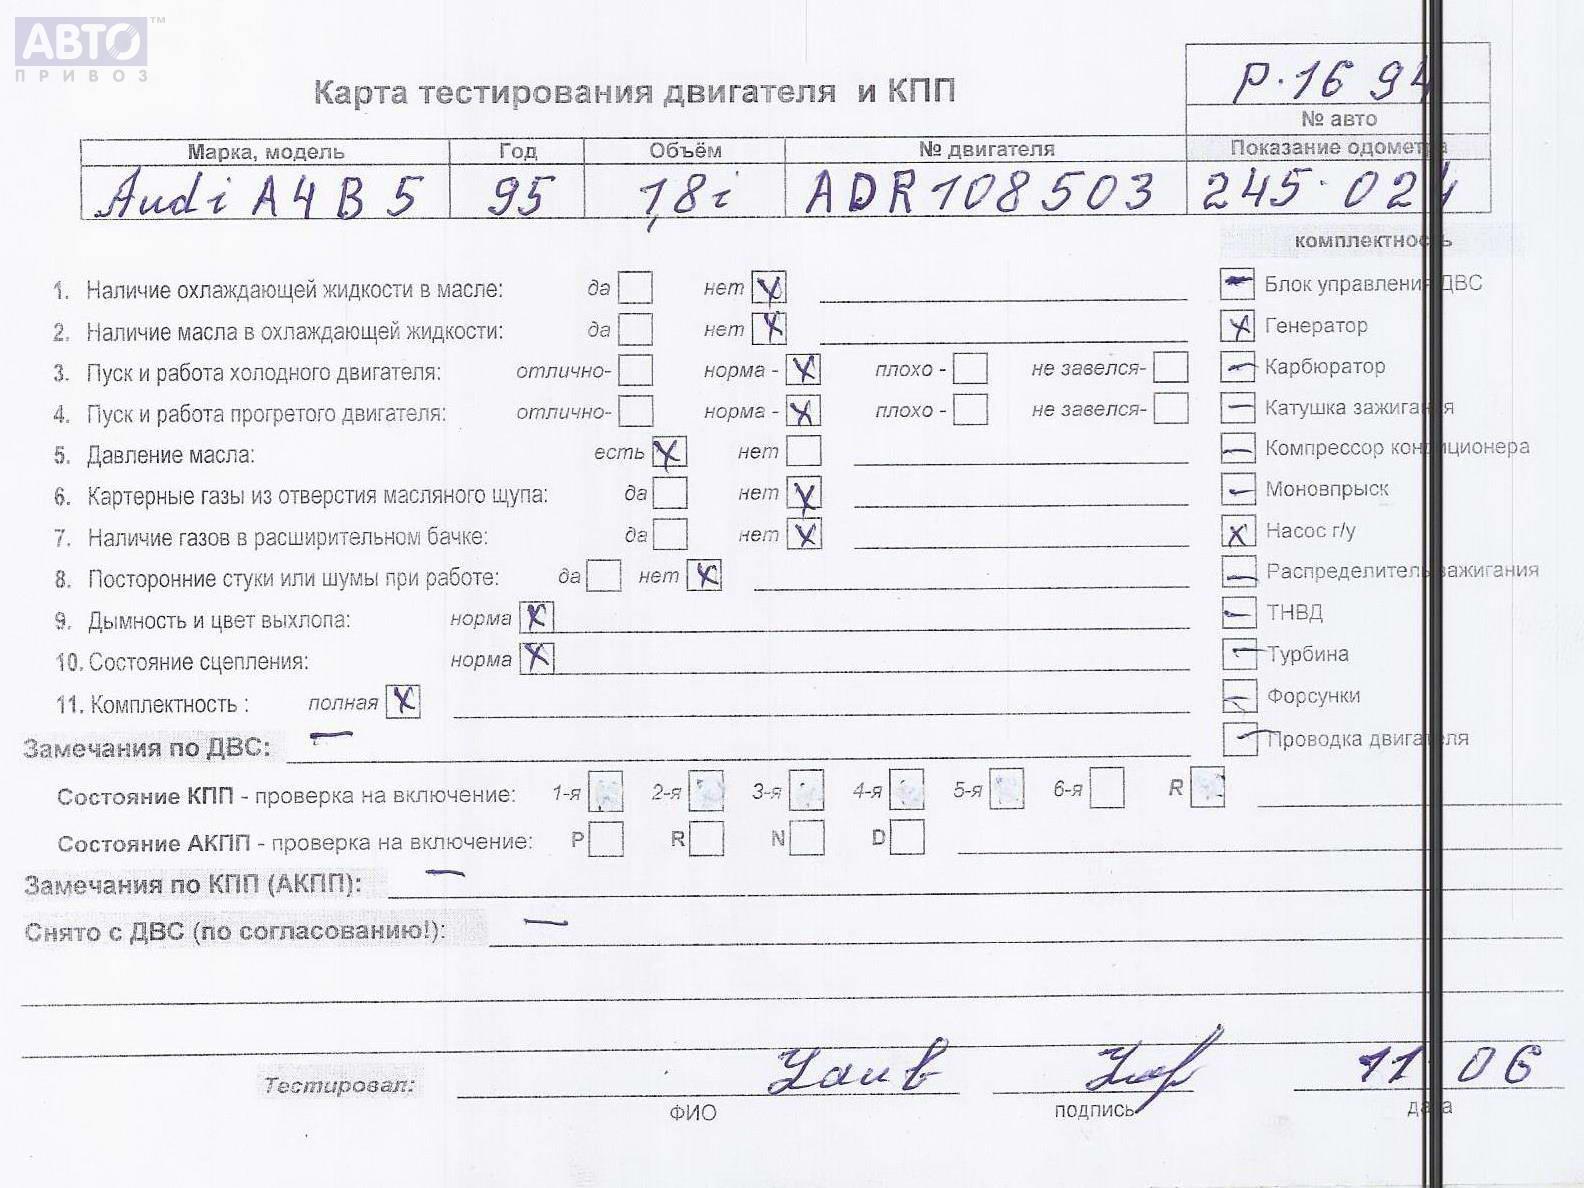 АВТО™
ПРИВОЗ
Карта тестирования двигателя и КПП
Р.1694
№ авто
Марка, модель Год Объём № двигателя Показание одометра
Audi A4 B5 95 1,8i ADR108503 245.024
комплектность
1. Наличие охлаждающей жидкости в масле: да нет X Блок управления ДВС
2. Наличие масла в охлаждающей жидкости: да нет X X Генератор
3. Пуск и работа холодного двигателя: отлично- норма - X плохо - не завелся- — Карбюратор
4. Пуск и работа прогретого двигателя: отлично- норма - X плохо - не завелся- — Катушка зажигания
5. Давление масла: есть X нет — Компрессор кондиционера
6. Картерные газы из отверстия масляного щупа: да нет X — Моновпрыск
7. Наличие газов в расширительном бачке: да нет X X Насос г/у
8. Посторонние стуки или шумы при работе: да нет X — Распределитель зажигания
9. Дымность и цвет выхлопа: норма X — ТНВД
10. Состояние сцепления: норма X — Турбина
11. Комплектность : полная X — Форсунки
Замечания по ДВС: — — Проводка двигателя
Состояние КПП - проверка на включение: 1-я 2-я 3-я 4-я 5-я 6-я R
Состояние АКПП - проверка на включение: P R N D
Замечания по КПП (АКПП): —
Снято с ДВС (по согласованию!): —
Тестировал: 11 06
ФИО подпись дата